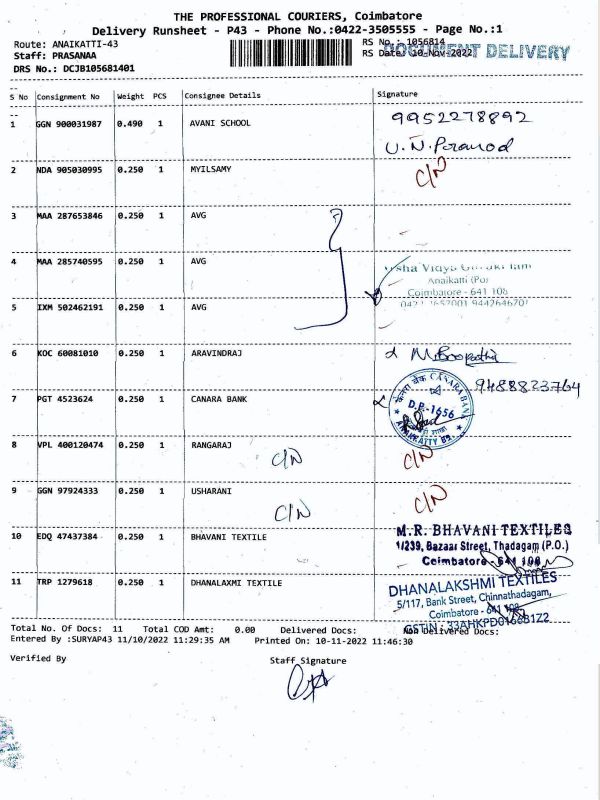 THE PROFESSIONAL COURIERS, Coimbatore
Delivery Runsheet - P43 - Phone No.:0422-3505555 - Page No.:1
Route: ANAIKATTI-43
RS No.: 1056814
Staff: PRASANAA
RS Date: 10-Nov-2022
DOCUMENT DELIVERY
DRS No.: DCJB105681401
S No Consignment No Weight PCS Consignee Details Signature
1 GGN 900031987 0.490 1 AVANI SCHOOL 9952278892
2 NDA 905030995 0.250 1 MYILSAMY C/N
3 MAA 287653846 0.250 1 AVG
4 MAA 285740595 0.250 1 AVG
Anaikatti (Po)
Coimbatore - 641 108
5 IXM 502462191 0.250 1 AVG
6 KOC 60081010 0.250 1 ARAVINDRAJ
9488823764
7 PGT 4523624 0.250 1 CANARA BANK
केनरा बैंक CANARA BANK
D.P.-1656
8 VPL 400120474 0.250 1 RANGARAJ C/N C/N
9 GGN 97924333 0.250 1 USHARANI C/N C/N
10 EDQ 47437384 0.250 1 BHAVANI TEXTILE
M.R. BHAVANI TEXTILES
1/239, Bazaar Street, Thadagam (P.O.)
Coimbatore - 641 108
11 TRP 1279618 0.250 1 DHANALAXMI TEXTILE
DHANALAKSHMI TEXTILES
5/117, Bank Street, Chinnathadagam,
Coimbatore - 641 108
Total No. Of Docs: 11 Total COD Amt: 0.00 Delivered Docs: Non Delivered Docs:
Entered By :SURYAP43 11/10/2022 11:29:35 AM Printed On: 10-11-2022 11:46:30
Verified By Staff Signature